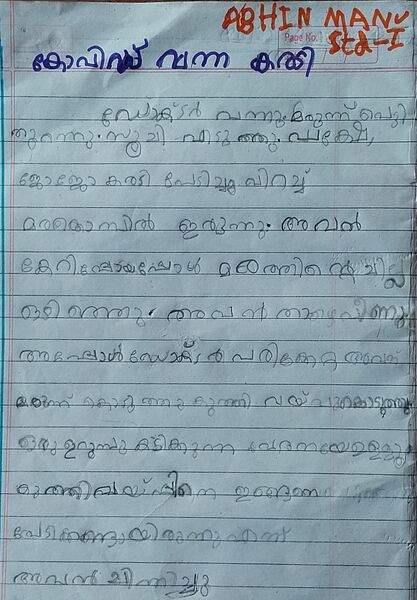 ABHIN MANU
Std-I
Page No.
കോവിഡ് വന്ന കരടി
ഡോക്ടർ വന്നു. മരുന്ന് പെട്ടി
തുറന്നു. സൂചി എടുത്തു. പക്ഷേ,
ജോജോ കരടി പേടിച്ചു വിറച്ച്
മരക്കൊമ്പിൽ ഇരുന്നു. അവൻ
കേറിപ്പോയപ്പോൾ മരത്തിന്റെ ചില്ല
ഒടിഞ്ഞു. അവൻ താഴെവീണു
അപ്പോൾ ഡോക്ടർ പരിക്കേറ്റ അവന്
മരുന്ന് കൊടുത്തു കുത്തി വയ്പുകൊടുത്തു.
ഒരു ഉറുമ്പു കടിക്കുന്ന വേദനയേഉള്ളു.
കുത്തിവയ്പ്പിനെ ഇങ്ങനെ
പേടിക്കണ്ടായിരുന്നു എന്ന്
അവൻ ചിന്തിച്ചു